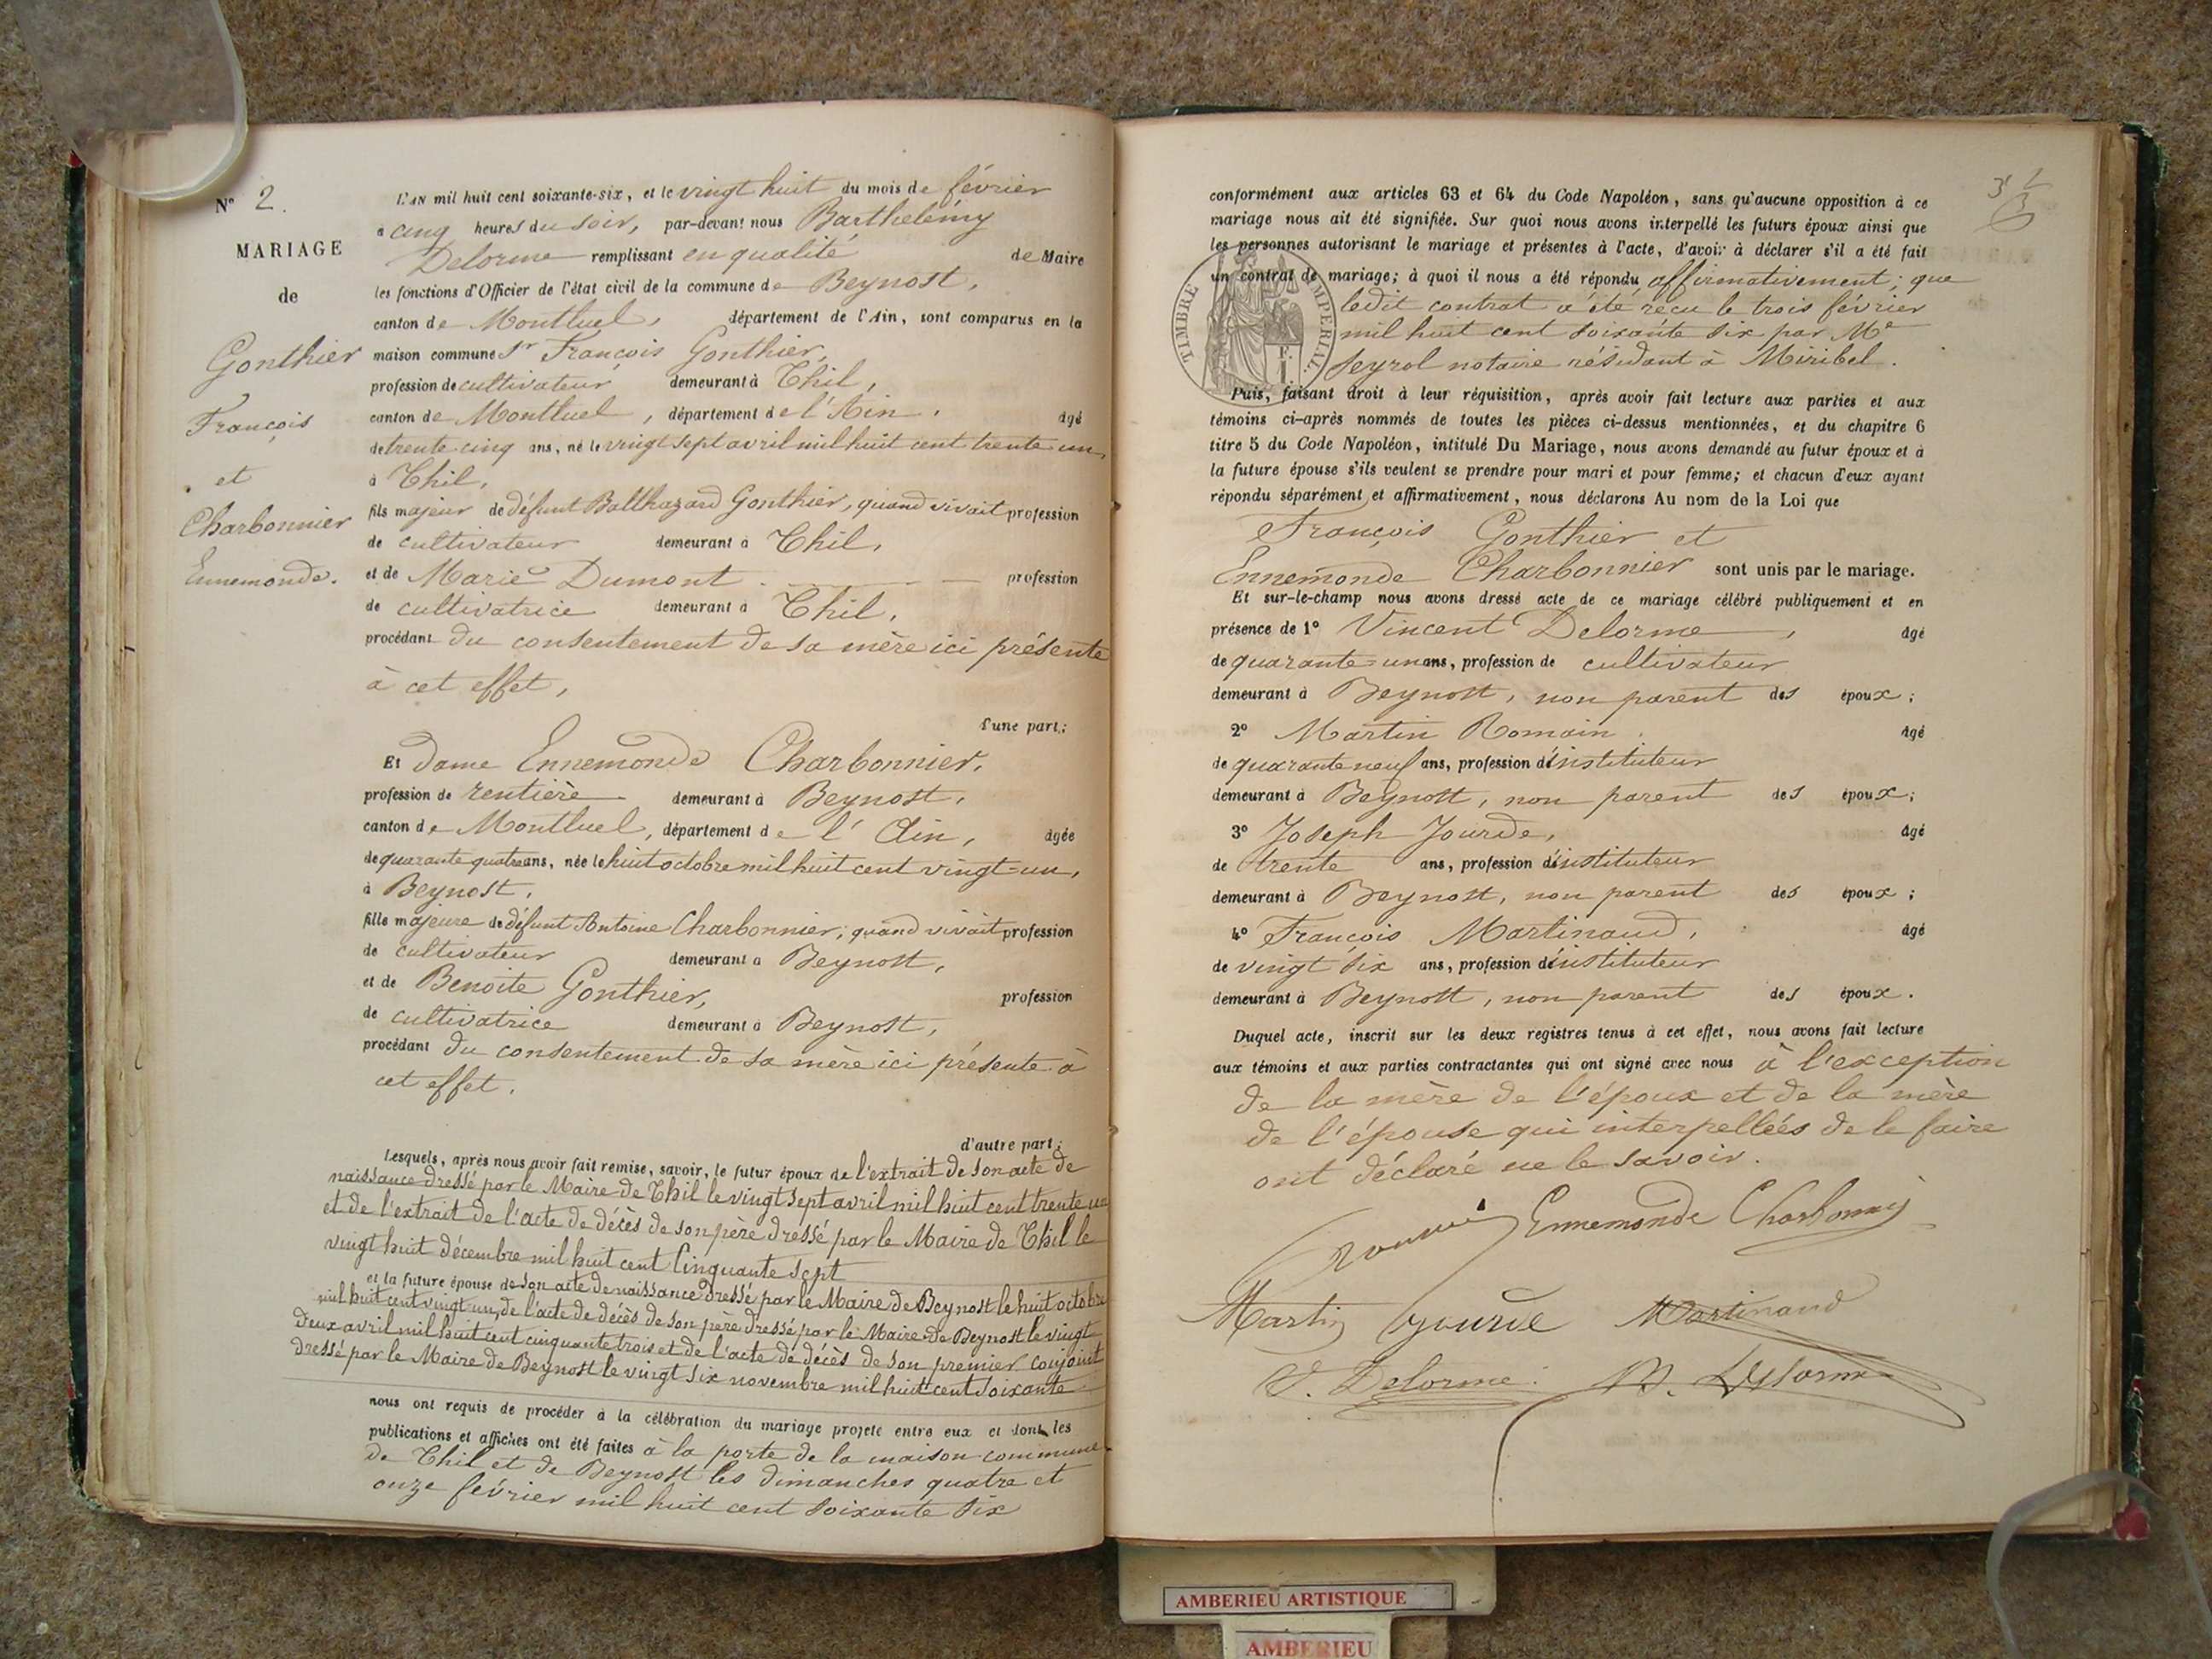 N° 2.
MARIAGE
de
Gonthier
François
et
Charbonnier
Ennemonde.
L'AN mil huit cent soixante-six, et le vingt huit du mois de février
à cinq heures du soir, par-devant nous Barthelémy
Delorme remplissant en qualité de Maire
les fonctions d'Officier de l'état civil de la commune de Beynost,
canton de Montluel, département de l'Ain, sont comparus en la
maison commune Sr François Gonthier,
profession de cultivateur demeurant à Thil,
canton de Montluel, département de l'Ain, âgé
de trente cinq ans, né le vingt sept avril mil huit cent trente un,
à Thil,
fils majeur de défunt Balthazard Gonthier, quand vivait profession
de cultivateur demeurant à Thil,
et de Marie Dumont profession
de cultivatrice demeurant à Thil,
procédant du consentement de sa mère ici présente
à cet effet,
d'une part;
Et dame Ennemonde Charbonnier,
profession de rentière demeurant à Beynost,
canton de Montluel, département de l'Ain, âgée
de quarante quatre ans, née le huit octobre mil huit cent vingt-un,
à Beynost,
fille majeure de défunt Antoine Charbonnier, quand vivait profession
de cultivateur demeurant à Beynost,
et de Benoite Gonthier, profession
de cultivatrice demeurant à Beynost,
procédant du consentement de sa mère ici présente à
cet effet.
d'autre part;
Lesquels, après nous avoir fait remise, savoir, le futur époux de l'extrait de son acte de
naissance dressé par le Maire de Thil le vingt sept avril mil huit cent trente un
et de l'extrait de l'acte de décès de son père dressé par le Maire de Thil le
vingt huit décembre mil huit cent cinquante sept
et la future épouse de son acte de naissance dressé par le Maire de Beynost le huit octobre
mil huit cent vingt-un, de l'acte de décès de son père dressé par le Maire de Beynost le vingt
deux avril mil huit cent cinquante trois et de l'acte de décès de son premier conjoint
dressé par le Maire de Beynost le vingt six novembre mil huit cent soixante
nous ont requis de procéder à la célébration du mariage projeté entre eux et dont les
publications et affiches ont été faites à la porte de la maison commune
de Thil et de Beynost les dimanches quatre et
onze février mil huit cent soixante six
3
conformément aux articles 63 et 64 du Code Napoléon, sans qu'aucune opposition à ce
mariage nous ait été signifiée. Sur quoi nous avons interpellé les futurs époux ainsi que
les personnes autorisant le mariage et présentes à l'acte, d'avoir à déclarer s'il a été fait
un contrat de mariage; à quoi il nous a été répondu affirmativement; que
ledit contrat a été reçu le trois février
mil huit cent soixante six par Me
Seyrol notaire résidant à Miribel.
TIMBRE IMPERIAL
Puis, faisant droit à leur réquisition, après avoir fait lecture aux parties et aux
témoins ci-après nommés de toutes les pièces ci-dessus mentionnées, et du chapitre 6
titre 5 du Code Napoléon, intitulé Du Mariage, nous avons demandé au futur époux et à
la future épouse s'ils veulent se prendre pour mari et pour femme; et chacun d'eux ayant
répondu séparément et affirmativement, nous déclarons Au nom de la Loi que
François Gonthier et
Ennemonde Charbonnier sont unis par le mariage.
Et sur-le-champ nous avons dressé acte de ce mariage célébré publiquement et en
présence de 1° Vincent Delorme, âgé
de quarante-un ans, profession de cultivateur
demeurant à Beynost, non parent des époux;
2° Martin Romain, âgé
de quarante neuf ans, profession d'instituteur
demeurant à Beynost, non parent des époux;
3° Joseph Jourde, âgé
de trente ans, profession d'instituteur
demeurant à Beynost, non parent des époux;
4° François Martinaud, âgé
de vingt six ans, profession d'instituteur
demeurant à Beynost, non parent des époux.
Duquel acte, inscrit sur les deux registres tenus à cet effet, nous avons fait lecture
aux témoins et aux parties contractantes qui ont signé avec nous à l'exception
de la mère de l'époux et de la mère
de l'épouse qui interpellées de le faire
ont déclaré ne le savoir.
Ennemonde Charbonnier
Martin Jourde Martinaud
V. Delorme. B. Delorme
AMBERIEU ARTISTIQUE
AMBERIEU